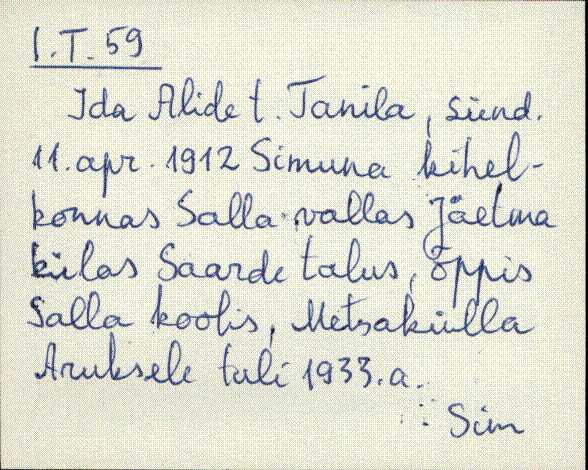 I.T. 59
Ida Alide t. Tanila, sünd.
11. apr. 1912 Simuna kihel-
konnas Salla vallas Jäetma
külas Saarde talus, õppis
Salla koolis, Metsakülla
Aruksele tuli 1933. a.
Sim